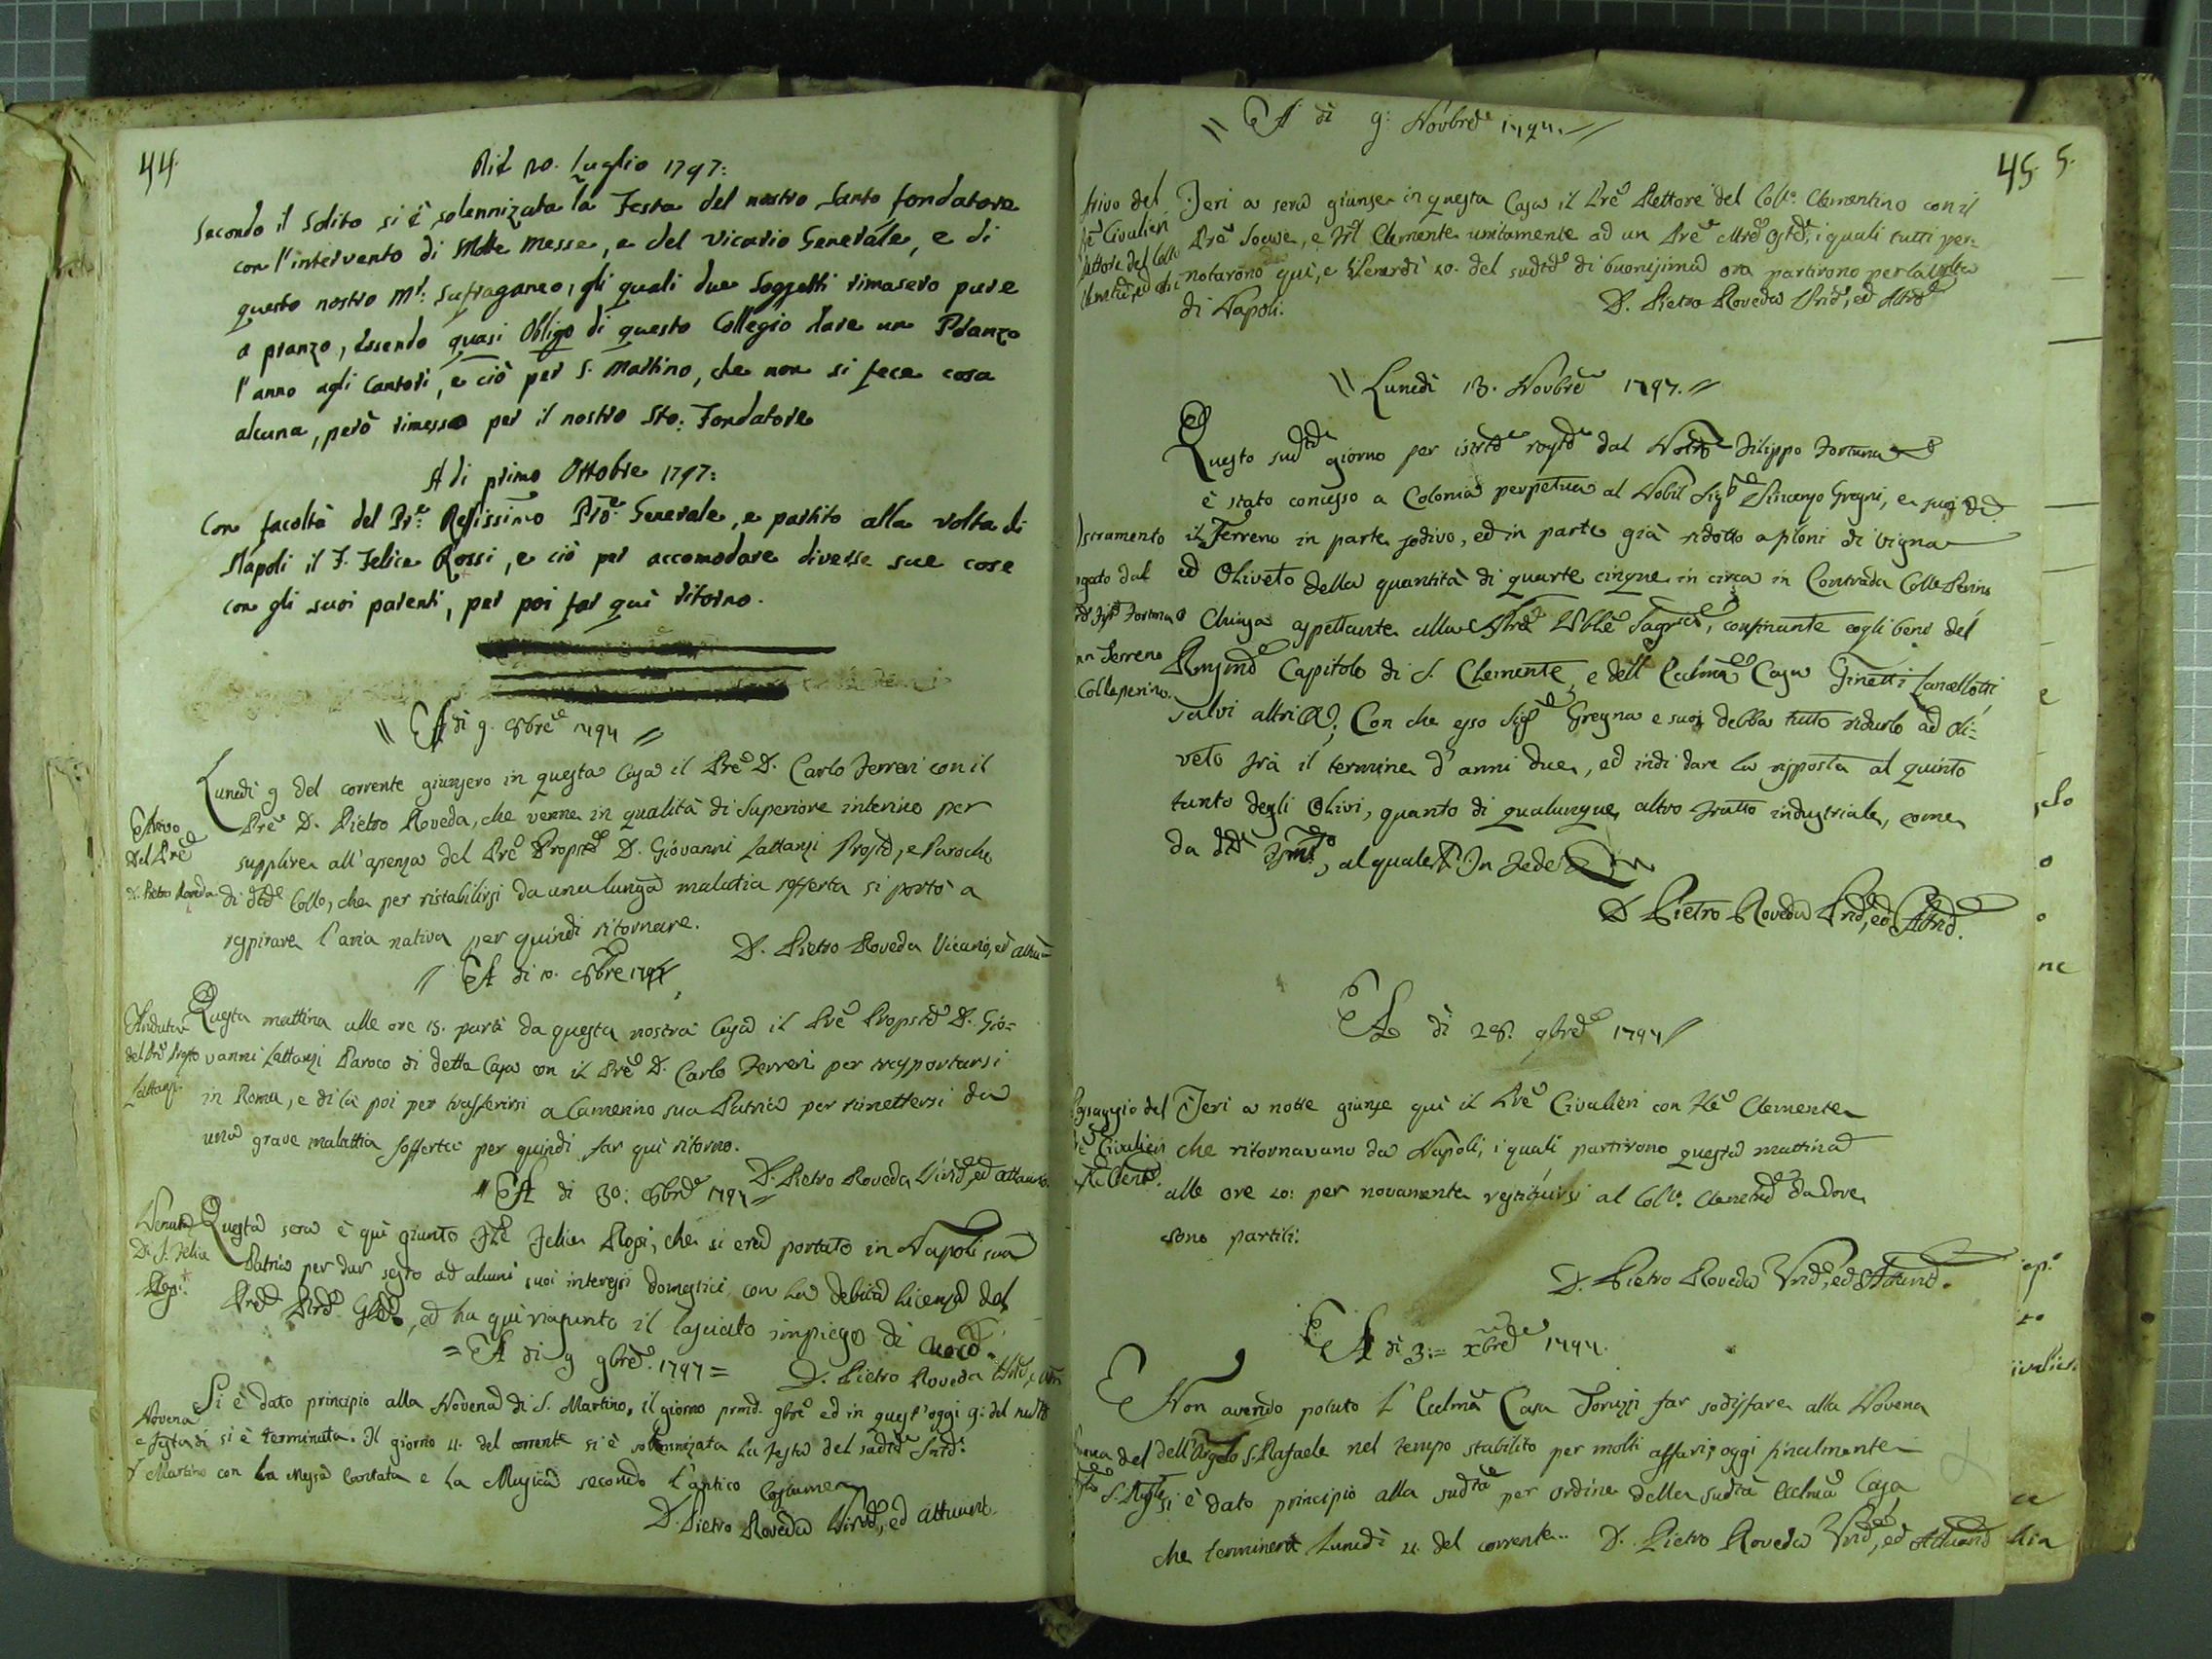 44.
Adì 20. Luglio 1797:
Secondo il Solito si è solennizata la Festa del nostro Santo fondatore
con l'intervento di Molte Messe, e del Vicario Generale, e di
questo nostro Mr: Sufraganeo, gli quali due Soggetti rimasero pure
a pranzo, essendo quasi Obligo di questo Collegio dare un Pranzo
l'anno agli Cantori, e ciò per S. Martino, che non si fece cosa
alcuna, però rimesso per il nostro Sto: Fondatore
A di primo Ottobre 1797:
Con facoltà del Pre: Ressissimo Proe: Generale, e partito alla volta di
Napoli il F. Felice Rossi, e ciò per accomodare diverse sue cose
con gli suoi parenti, per poi far quì ritorno.
A di 9. 8bre 1797
Lunedì 9 del corrente giunsero in questa Casa il Pre D. Carlo Ferreri con il
Pre D. Pietro Roveda, che venne in qualità di Superiore interino per
supplire all'assenza del Pre Propsto D. Giovanni Lattanzi Propsto, e Paroco
di dto Collo, che per ristabilirsi da una lunga malatia sofferta si portò a
respirare l'aria nativa per quindi ritornare.
D. Pietro Roveda Vicario, ed Attuar
Arrivo
del Pre
D. Pietro Roveda
A di 10. 8bre 1797
Questa mattina alle ore 15. partì da questa nostra Casa il Pre Propsto D. Gio-
vanni Lattanzi Paroco di detta Casa con il Pre D. Carlo Ferreri per trasportarsi
in Roma, e di là poi per trasferirsi a Camerino sua Patria per rimettersi da
una grave malattia sofferta per quindi far quì ritorno.
D. Pietro Roveda Vicrio, ed Attuario.
Andata
del Pre Propto
Lattanzi.
A di 30: 8bre 1797
Questa sera è quì giunto Fle Felice Rossi, che si era portato in Napoli sua
Patria per dar sesto ad alcuni suoi interessi domestici, con la debita licenza del
ed ha quì riassunto il lasciato impiego di
Venuta
Di F. Felice
Rossi.
= A di 9 9bre. 1797 =
D. Pietro Roveda
Si è dato principio alla Novena di S. Martino, il giorno pmo. 9bre ed in quest'oggi 9: del
si è terminata. Il giorno 11. del corrente si è solennizata la festa del sudto Snto:
con la Messa Cantata e la Musica secondo l'antico Costume
D. Pietro Roveda Vicrio, ed Attuario
Novena
e festa di
S. Martino
45. 5.
A di 9: Novbre 1797.
Jeri a sera giunse in questa Casa il Pre Rettore del Collo. Clementino con il
Pre Soave, e Frl Clemente unitamente ad un Pre i quali tutti per-
notarono quì, e Venerdì 10. del sudto di buonissima ora partirono per la volta
di Napoli.
D. Pietro Roveda Vrio, ed Attrio
rrivo del
re Civalieri
ettore del Collo
Lunedì 13. Novbre 1797.
Questo sudto giorno per istrto rogto dal Notro Filippo Fortuna
è stato concesso a Colonia perpetua al Nobil Sigre Vincenzo Gregni, e suoi
il Terreno in parte sodivo, ed in parte già ridotto a piloni di vigna
ed Oliveto della quantità di quarte cinque in circa in Contrada Colle Perino
Chiusa spettante alla confinante cogli beni del
Rmo Capitolo di S. Clemente, e dell' Eccma Casa Ginetti Lancellotti
salvi altri &; Con che esso Sigre Gregna e suoi debba tutto ridurlo ad oli-
veto frà il termine d'anni due, ed indi dare la risposta al quinto
tanto degli Olivi, quanto di qualunque altro frutto industriale, come
da dto Ismto, al quale &. In Fede
D. Pietro Roveda Vrio, ed Attrio.
Istrumento
ogato dal
Fortuna
un Terreno
Colleperino.
A dì 28. 9bre 1797
Jeri a notte giunse quì il Pre Civalieri con Fle Clemente
che ritornavano da Napoli, i quali partirono questa mattina
alle ore 10: per novamente restituirsi al Collo. Clemtno da dove
sono partiti.
D. Pietro Roveda Vrio, ed Attuario.
Passaggio del
re Civalieri
A dì 3:= Xbre 1797.
Non avendo potuto l'Eccma Casa Toruzzi far sodisfare alla Novena
dell'Angelo S. Rafaele nel tempo stabilito per molti affari, oggi finalmente
si è dato principio alla sudta per ordine della sudta Eccma Casa
che terminerà Lunedì 11. del corrente.. D. Pietro Roveda Vrio, ed Attuario